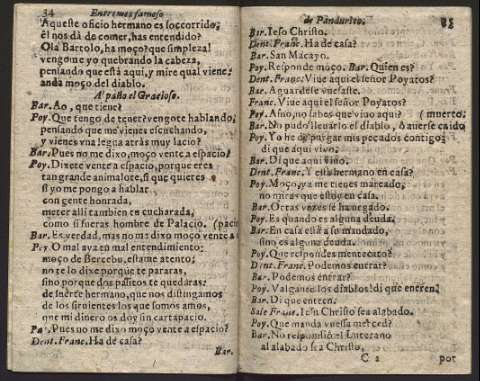 34 Entremes famoso
Aqueste oficio hermano es socorrido,
èl nos dà de comer, has entendido?
Ola Bartolo, ha moço? que simpleza!
vengome yo quebrando la cabeça,
pensando que està aqui, y mire qual viene:
anda moço del diablo.
A paño el Gracioso.
Bar. Ao, que tiene?
Poy. Que tengo de tener? vengote hablando,
pensando que me vienes escuchando,
y vienes vna legua atràs muy lacio?
Bar. Pues no me dixo, moço vente a espacio?
Poy. Dixete vente a espacio, porque eres
tan grande animalote, si que quieres
si yo me pongo a hablar
con gente honrada,
meter alli tambien tu cucharada,
como si fueras hombre de Palacio. (pacio
Bar. Es verdad, mas no me dixo moço vente a es
Poy. O mal aya en mal entendimiento:
moço de Bercebu, estame atento;
no te lo dixe porque te pararas,
sino porque dos passitos te quedaras:
de suerte hermano, que nos distingamos
de los siruientes los que somos amos,
que mi dinero os doy sin cartapacio.
Bar. Pues no me dixo moço vente a espacio?
Dent. Franc. Ha de casa?
Bar.
de Pandurico. 35
Bar. Iesu Christo.
Dent. Franc. Ha de casa?
Bar. San Macayo.
Poy. Responde moço. Bar. Quien es?
Dent. Franc. Viue aqui el señor Poyatos?
Bar. Aguardese vuesaste.
Franc. Viue aqui el señor Poyatos?
Poy. Asno, no sabes que viuo aqui? (muerto;
Bar. No pudo lleuarlo el diablo, ò auerse caido
Poy. Yo he de pargar mis pecados contigo;
di que aqui viuo.
Bar. Di que aqui vino.
Dent. Franc. Y està hermano en casa?
Poy. Moço, ya me tienes mareado,
no miras que estoy en casa.
Bar. Otras vezes se ha negado.
Poy. Es quando es alguna deuda.
Bar. En casa està a su mandado,
sino es alguna deuda.
Poy. Que respondes mentecato?
Dent. Franc. Podemos entrar?
Bar. Podemos entrar?
Poy. Valgante los diablos! di que entren.
Bar. Di que entren.
Sale Franc. Iesu Christo sea alabado.
Poy. Que manda vuessa merced?
Bar. No respondiò el Luterano
al alabado sea Christo.
C 2 por